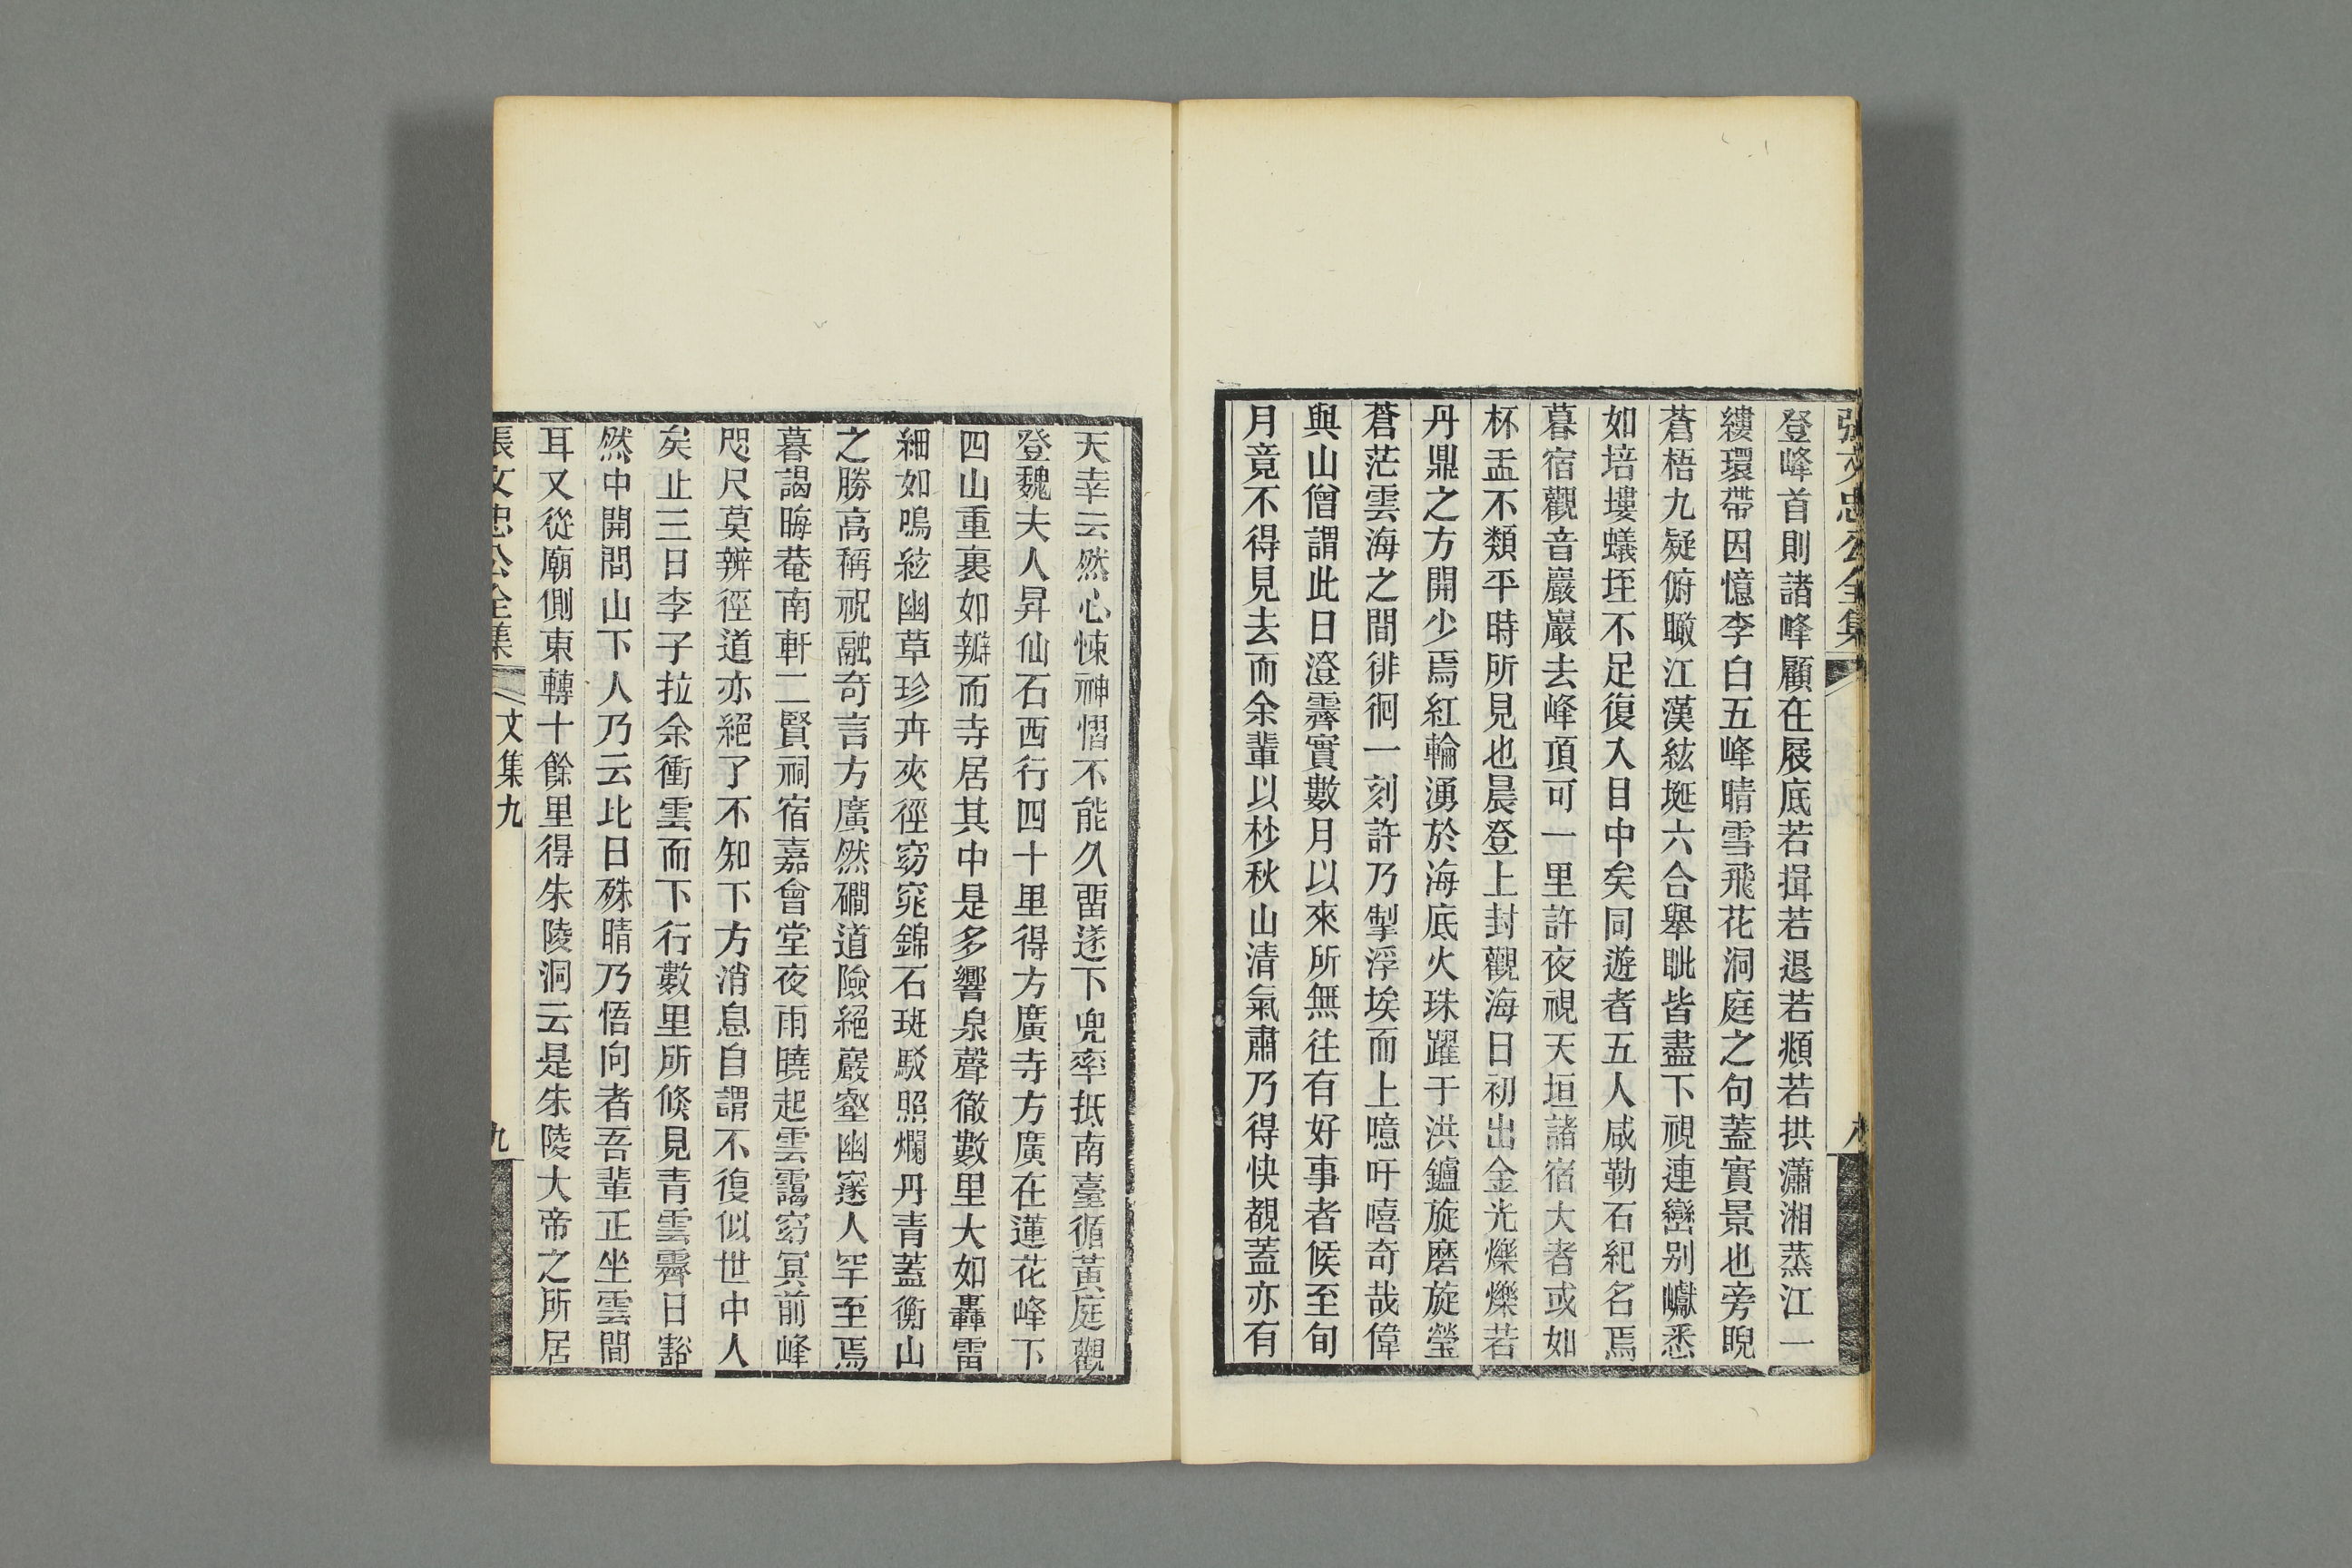 張文忠公全集
八
登峰首則諸峰顧在屐底若揖若退若頫若拱瀟湘蒸江一
縷環帶因憶李白五峰晴雪飛花洞庭之句蓋實景也旁睨
蒼梧九疑俯瞰江漢紘埏六合舉眦皆盡下視連巒别巘悉
如培塿蟻垤不足復入目中矣同遊者五人咸勒石紀名焉
暮宿觀音巖巖去峰頂可一里許夜視天垣諸宿大者或如
杯盂不類平時所見也晨登上封觀海日初出金光爍爍若
丹鼎之方開少焉紅輪湧於海底火珠躍于洪鑪旋磨旋瑩
蒼茫雲海之間徘徊一刻許乃掣浮埃而上噫吁嘻奇哉偉
與山僧謂此日澄霽實數月以來所無往有好事者候至旬
月竟不得見去而余輩以杪秋山清氣肅乃得快覩蓋亦有
天幸云然心悚神慴不能久畱遂下兜率抵南臺循黃庭觀
登魏夫人昇仙石西行四十里得方廣寺方廣在蓮花峰下
四山重裏如瓣而寺居其中是多響泉聲徹數里大如轟雷
細如鳴絃幽草珍卉夾徑窈窕錦石斑駁照爛丹青蓋衡山
之勝高稱祝融奇言方廣然磵道險絕巖壑幽邃人罕至焉
暮謁晦菴南軒二賢祠宿嘉會堂夜雨曉起雲靄窈冥前峰
咫尺莫辨徑道亦絕了不知下方消息自謂不復似世中人
矣止三日李子拉余衝雲而下行數里所倏見青雲霽日豁
然中開問山下人乃云比日殊晴乃悟向者吾輩正坐雲間
耳又從廟側東轉十餘里得朱陵洞云是朱陵大帝之所居
張文忠公全集
文集九
九